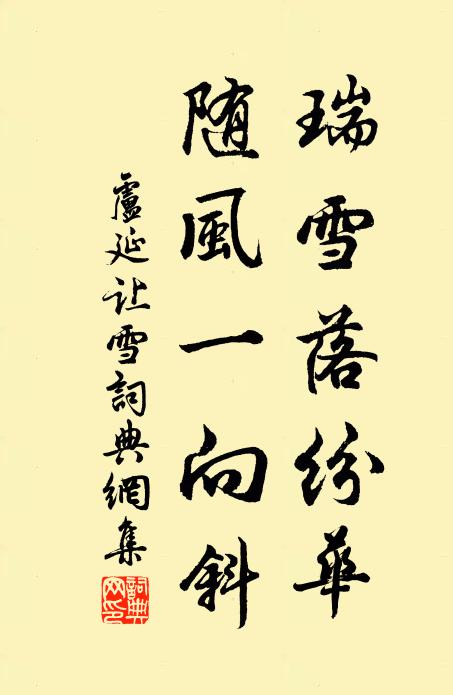 瑞雪落紛華
随風一向斜
盧延让雪詞典網集
詞典网印